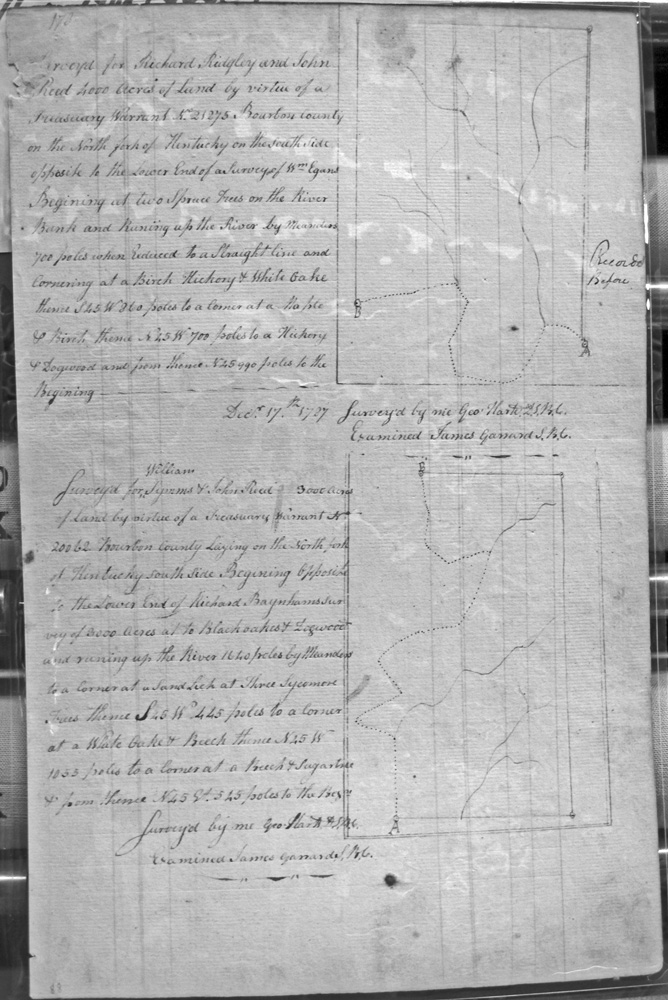 173
Surveyd for Richard Ridgley and John
Reed 4000 Acres of Land by virtue of a
Treasuary Warrant No. 21275 Bourbon county
on the North fork of Kentucky on the south side
opposite to the Lower End of a Survey of Wm Egans
Begining at two Spruce Trees on the River
Bank and Runing up the River by Meanders
700 poles when Reduced to a Straight line and
Cornering at a Birch Hickory & White Oake
thence S 45 W 960 poles to a Corner at a Maple
& Birch thence N 45 W 700 poles to a Hickory
& Dogwood and from thence N 45 990 poles to the
Begining
Recorded
Before
B
A
Decr. 17.th 1727 Survey'd by me Geo Hart D.S.B.C.
Examined James Garrard S.B.C.
William
Survey'd for Symms & John Reed 3000 Acres
of Land by virtue of a Treasuary Warrant No
20062 Bourbon County Laying on the North fork
of Kentucky south side Begining Opposite
to the Lower End of Richard Baynhams sur
vey of 3000 Acres at to Black oakes & Dogwood
and runing up the River 1640 poles by Meanders
to a Corner at a Sand Lick at Three Sycomore
Trees thence S 45 W 445 poles to a Corner
at a White Oake & Beech thence N 45 W
1033 poles to a Corner at a Beech & Sugartree
& from thence N 45 Et. 545 poles to the Begn
Survey'd by me Geo Hart D.S.B.C.
Examined James Garrard S.B.C.
B
A